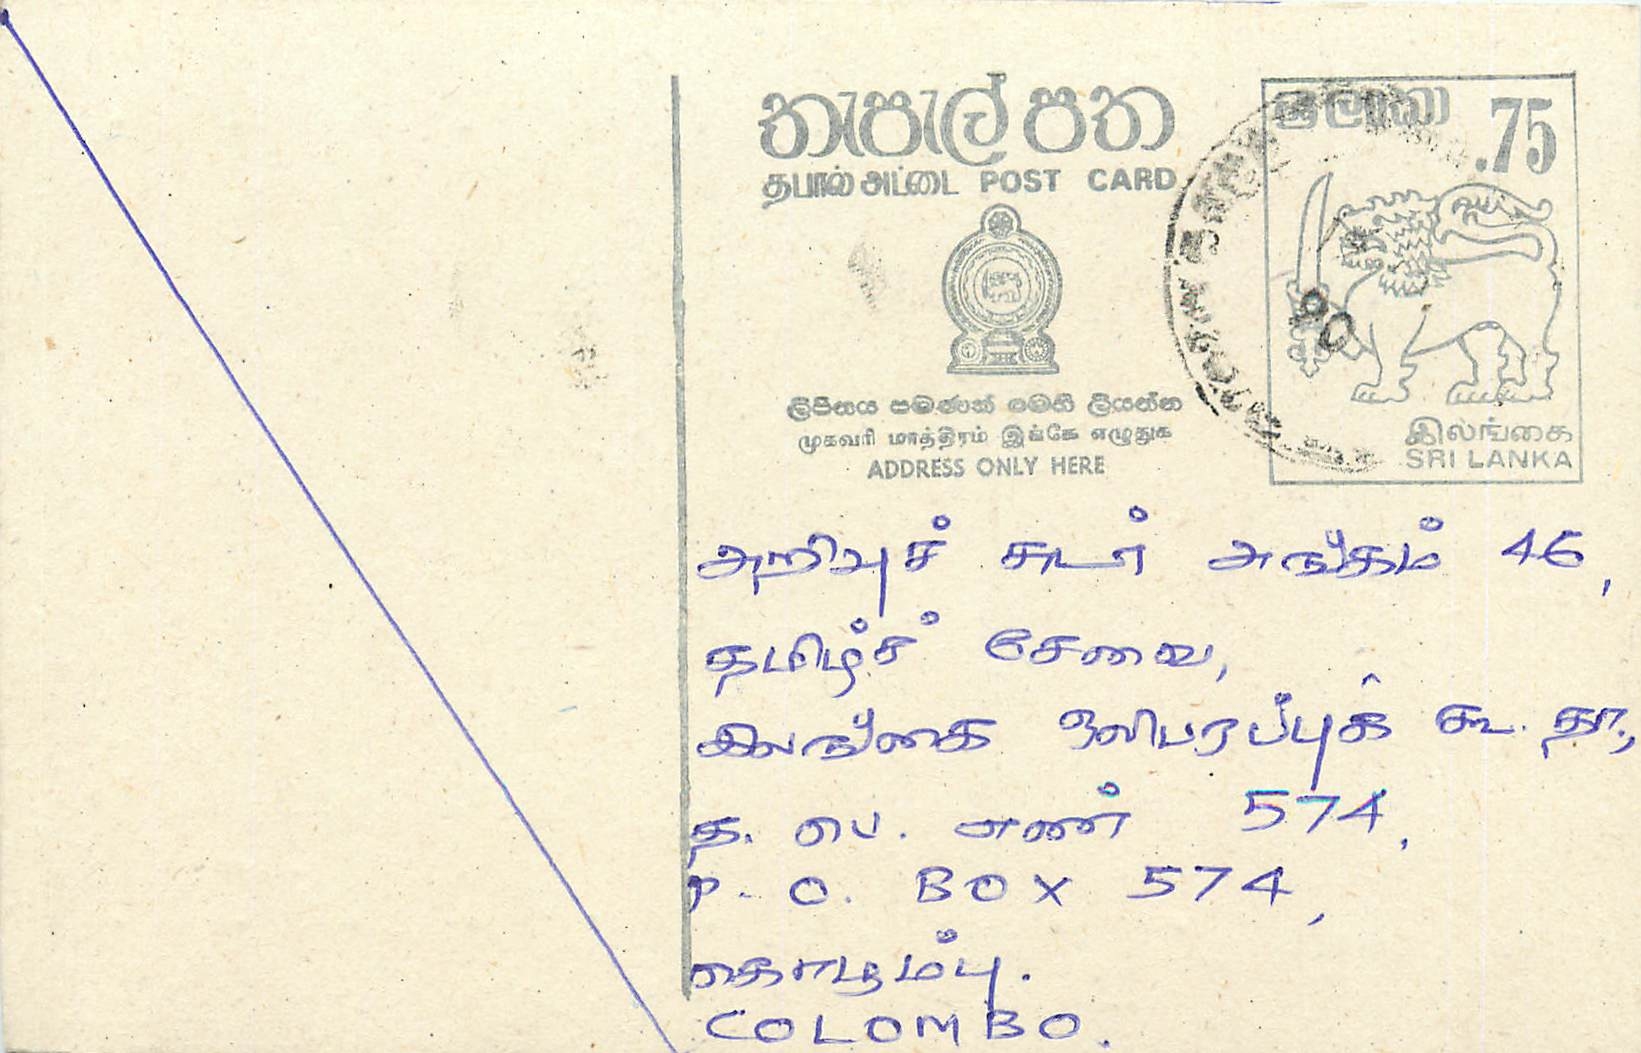 තැපැල් පත
தபால் அட்டை POST CARD
ලිපිනය පමණක් මෙහි ලියන්න
முகவரி மாத்திரம் இங்கே எழுதுக
ADDRESS ONLY HERE
ශ්‍රී ලංකා .75
90
இலங்கை
SRI LANKA
அறிவுச் சுடர் அங்கம் 46,
தமிழ்ச் சேவை,
இலங்கை ஒலிபரப்புக் கூ. தா,
த. பெ. எண் 574,
P. O. BOX 574,
கொழும்பு.
COLOMBO.